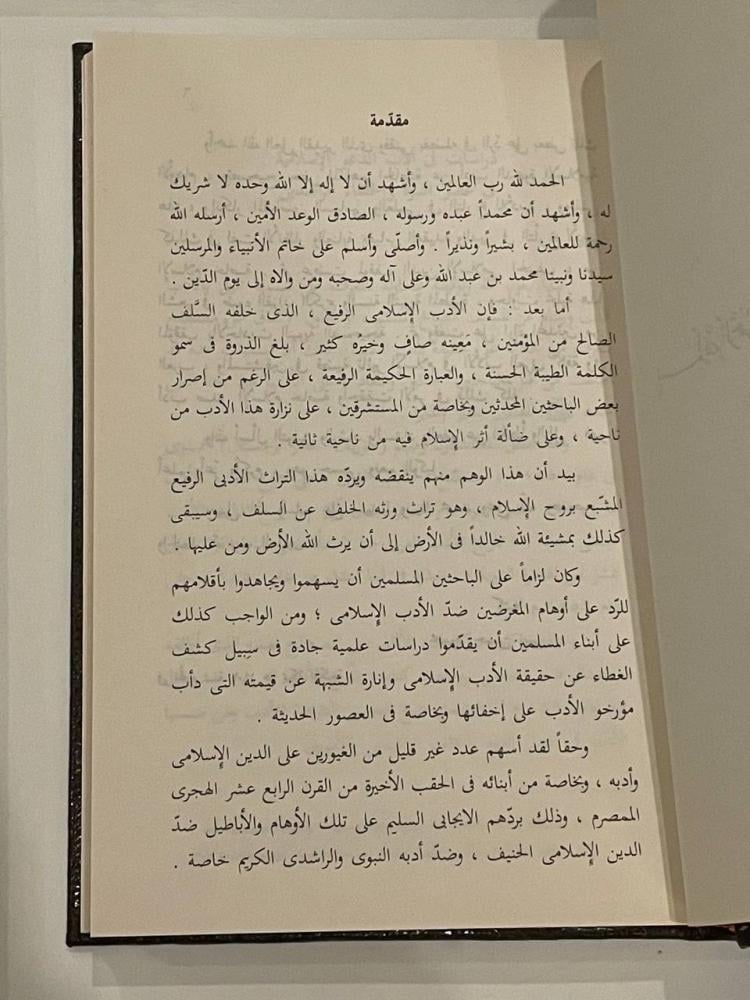 مقدّمة
الحمد لله رب العالمين ، وأشهد أن لا إله إلا الله وحده لا شريك
له ، وأشهد أن محمداً عبده ورسوله ، الصادق الوعد الأمين ، أرسله الله
رحمة للعالمين ، بشيراً ونذيراً . وأصلّى وأسلم على خاتم الأنبياء والمرسلين
سيدنا ونبينا محمد بن عبد الله وعلى آله وصحبه ومن والاه إلى يوم الدّين .
أما بعد : فإن الأدب الإسلامى الرفيع ، الذى خلفه السَّلف
الصالح من المؤمنين ، مَعِينه صافٍ وخيرُه كثير ، بلغ الذروة فى سمو
الكلمة الطيبة الحسنة ، والعبارة الحكيمة الرفيعة ، على الرغم من إصرار
بعض الباحثين المحدثين وبخاصة من المستشرقين ، على نزارة هذا الأدب من
ناحية ، وعلى ضآلة أثر الإسلام فيه من ناحية ثانية .
بيد أن هذا الوهم منهم ينقضه ويردّه هذا التراث الأدبى الرفيع
المشّبع بروح الإسلام ، وهو تراث ورثه الخلف عن السلف ، وسيبقى
كذلك بمشيئة الله خالداً فى الأرض إلى أن يرث الله الأرض ومن عليها .
وكان لزاماً على الباحثين المسلمين أن يسهموا ويجاهدوا بأقلامهم
للرّد على أوهام المغرضين ضدّ الأدب الإسلامى ؛ ومن الواجب كذلك
على أبناء المسلمين أن يقدّموا دراسات علمية جادة فى سبيل كشف
الغطاء عن حقيقة الأدب الإسلامى وإنارة الشبهة عن قيمته التى دأب
مؤرخو الأدب على إخفائها وبخاصة فى العصور الحديثة .
وحقاً لقد أسهم عدد غير قليل من الغيورين على الدين الإسلامى
وأدبه ، وبخاصة من أبنائه فى الحقب الأخيرة من القرن الرابع عشر الهجرى
الممصرم ، وذلك بردّهم الايجابى السليم على تلك الأوهام والأباطيل ضدّ
الدين الإسلامى الحنيف ، وضدّ أدبه النبوى والراشدى الكريم خاصة .